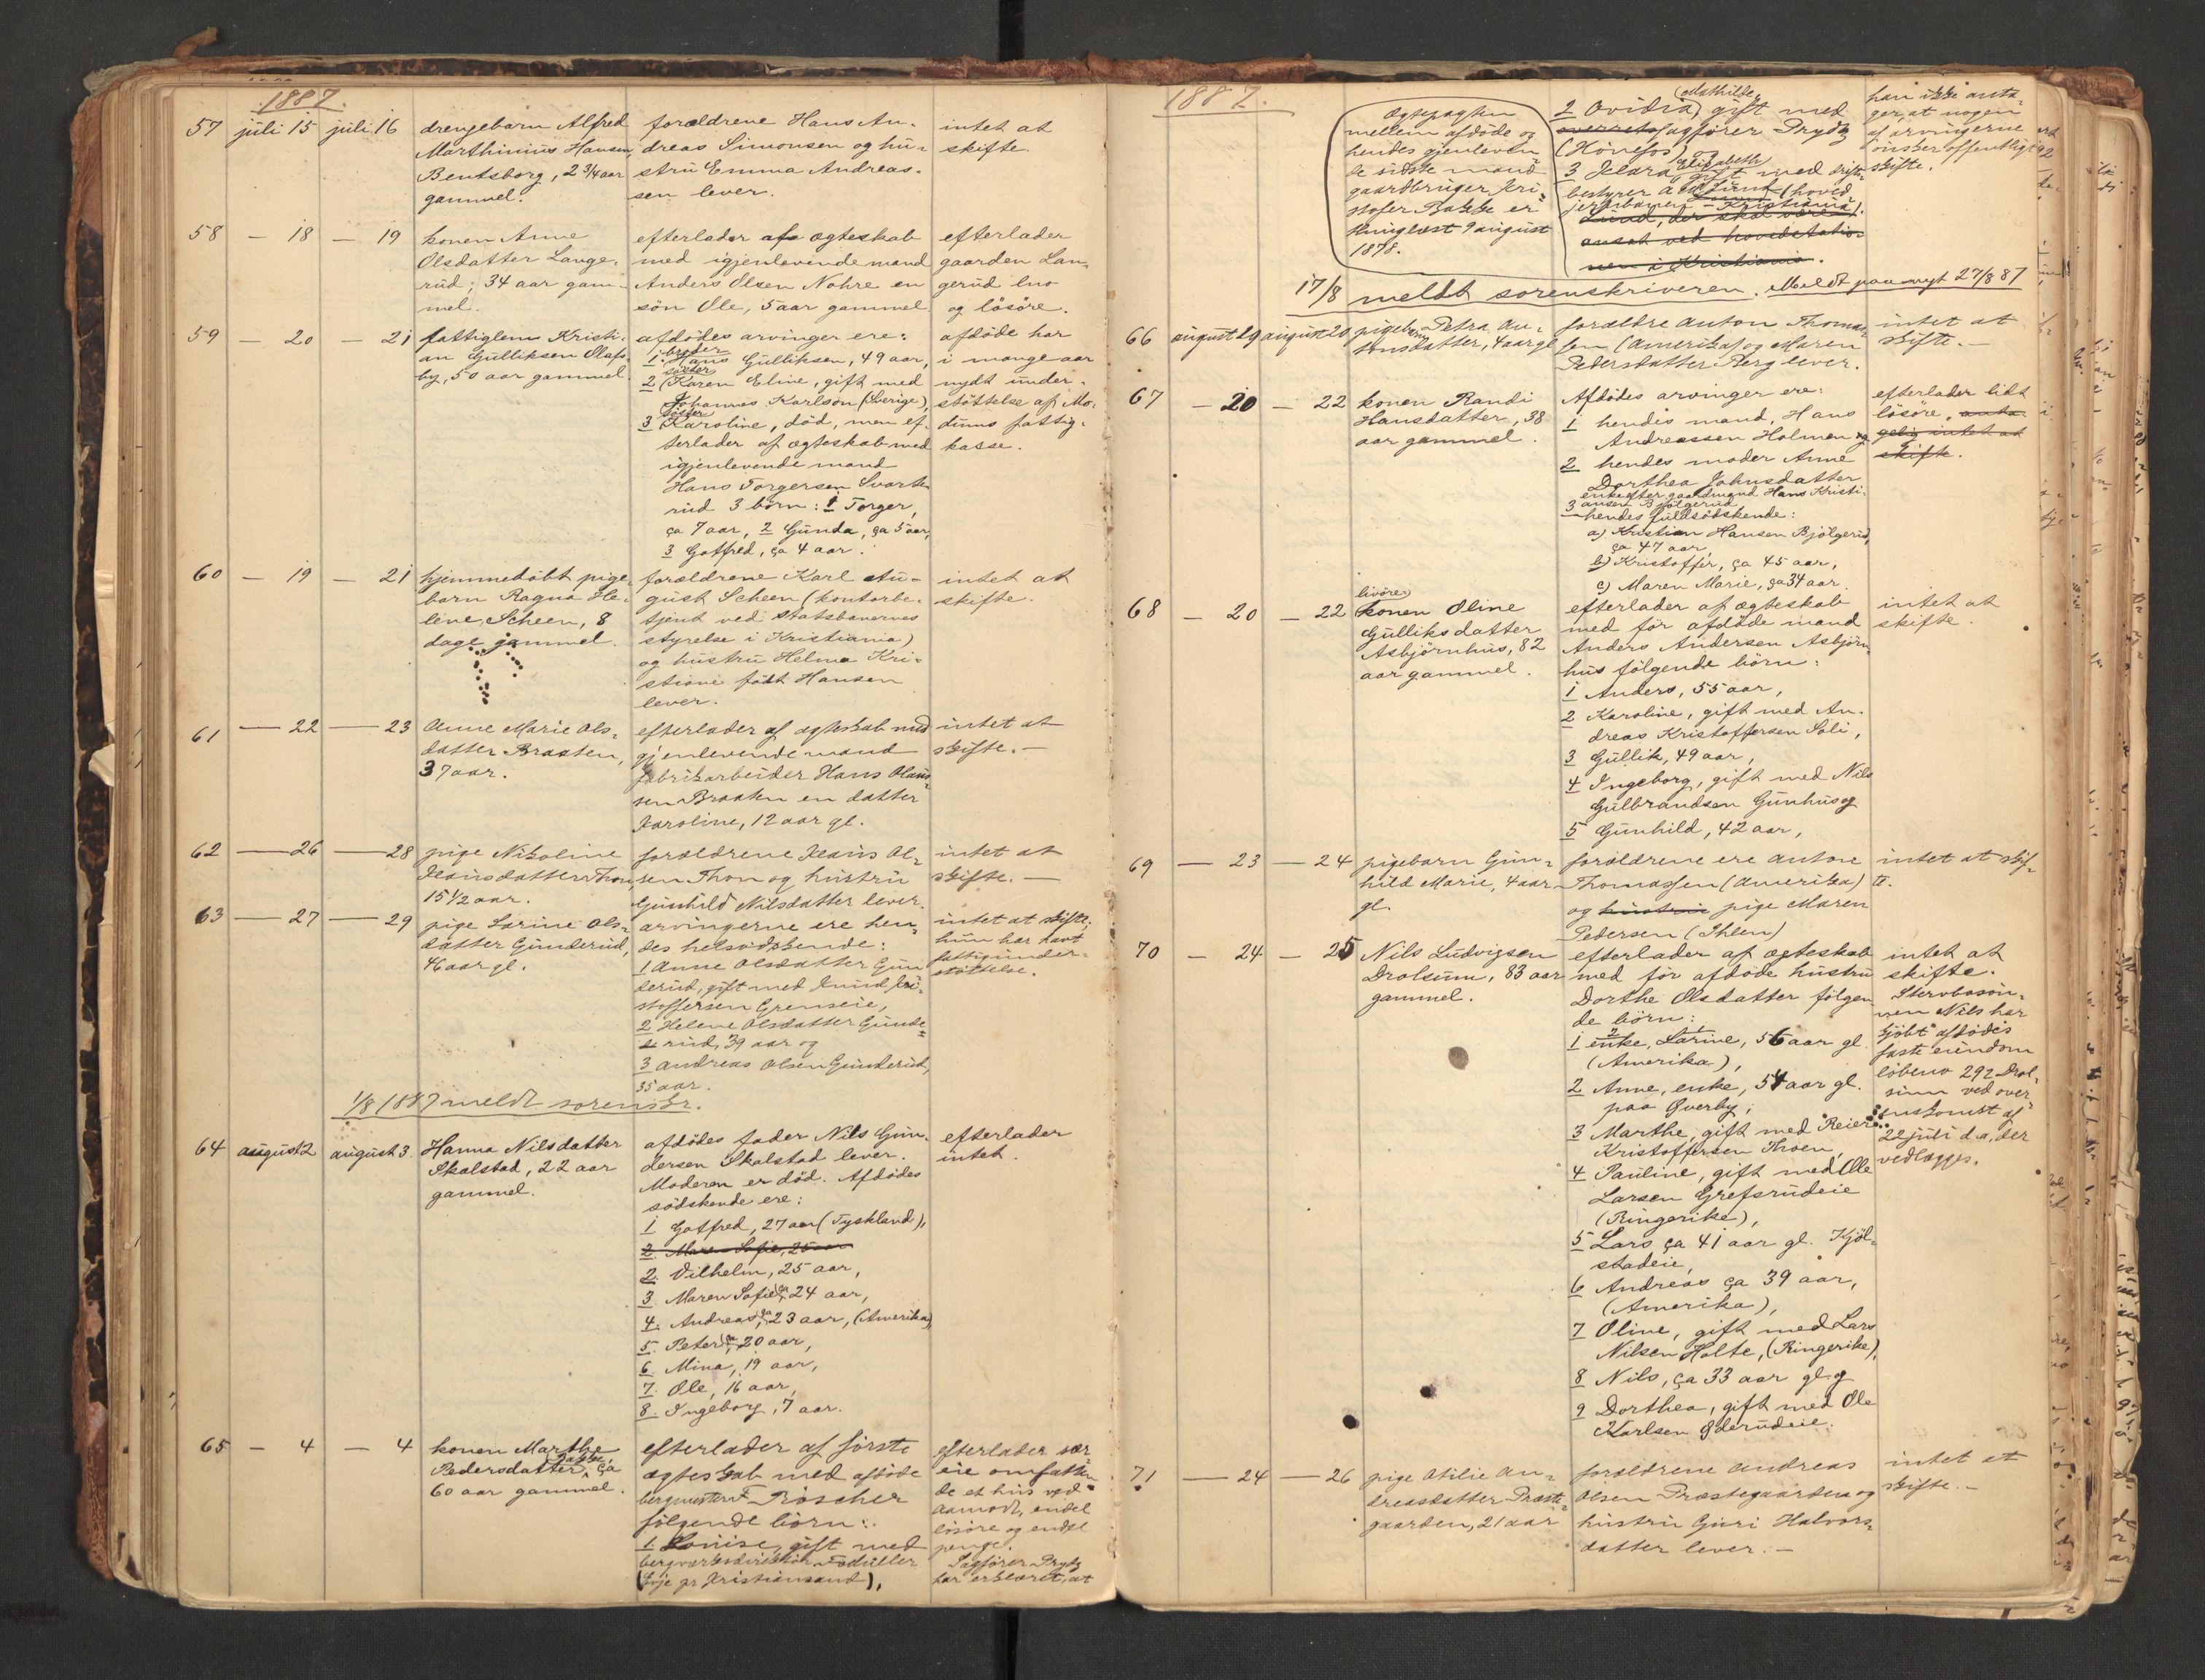 1887.
57 juli 15 juli 16
drengebarn Alfred
Marthinius Hansen
Bentsborg, 2 3/4 aar
gammel.
forældrene Hans An-
dreas Simonsen og hu-
stru Emma Andreas-
sen lever.
intet at
skifte.
58 — 18 — 19
konen Anne
Olsdatter Lange-
rud, 34 aar gam-
mel.
efterlader af ægteskab
med igjenlevende mand
Anders Olsen Nohre en
søn Ole, 5 aar gammel
efterlader
gaarden Lan-
gerud lno
og løsøre.
59 — 20 — 21
fattiglem Kristi-
an Gulliksen Olafs-
by, 50 aar gammel
afdødes arvinger ere:
broder
1 Hans Gulliksen, 49 aar,
søster
2 Karen Eline, gift med
Johannes Karlson (Sverige),
søster
3 Karoline, død, men ef-
terlader af ægteskab med
igjenlevende mand
Hans Torgersen Svarte-
rud 3 börn: 1 Torger,
ça 7 aar, 2 Gunda, ça 5 aar,
3 Gotfred, ça 4 aar.
afdøde har
i mange aar
nydt under-
støttelse af Mo-
dums fattig-
kasse.
60 — 19 — 21
hjemmedöbt pige-
barn Ragna He-
lene Scheen, 8
dage gammel.
forældrene Karl Au-
gust Scheen (kontorbe-
tjent ved statsbanernes
styrelse i Kristiania)
og hustru Helma Kri-
stine født Hansen
lever.
intet at
skifte.
61 — 22 — 23
Anne Marie Ols-
datter Braaten,
37 aar.
efterlader af ægteskab med
gjenlevende mand
fabrikarbeider Hans Olaus-
sen Braaten en datter
Karoline, 12 aar gl.
intet at
skifte. —
62 — 26 — 28
pige Nikoline
Klausdatter Thon,
15 1/2 aar.
forældrene Klaus Ol-
sen Thon og hustru
Gunhild Nilsdatter lever.
intet at
skifte. —
63 — 27 — 29
pige Larine Ols-
datter Gunderud,
46 aar gl.
arvingerne ere hen-
des helsødskende:
1 Anne Olsdatter Gun-
derud, gift med Knud Kri-
stoffersen Grenseie,
2 Helene Olsdatter Gunde-
rud, 39 aar og
3 Andreas Olsen Gunderud,
35 aar.
intet at skifte;
hun har havt
fattigunder-
støttelse.
1/8 1887 meldt sorenskr.
64 august 2 august 3.
Hanna Nilsdatter
Skalstad, 22 aar
gammel.
afdødes fader Nils Gun-
dersen Skalstad lever.
Moderen er död. Afdødes
södskende ere:
1 Gotfred, 27 aar (Tyskland),
2. Maren Sofie, 25 aar
2. Vilhelm, 25 aar,
3. Maren Sofie, ça 24 aar,
4. Andreas, ça 23 aar, (Amerika),
5. Peter, ça 20 aar,
6 Mina, 19 aar,
7. Ole, 16 aar,
8. Ingeborg, 7 aar.
efterlader
intet.
65 — 4 — 4
konen Marthe
Pedersdatter Bakke, ça
60 aar gammel.
efterlader af første
ægteskab med afdöde
bergmester F. Röscher
følgende börn:
1. Louise, gift med
bergværksdirektør
(Evje pr Kristiansand),
efterlader sær-
eie omfatten-
de et hus ved
Aamodt, endel
løsøre og endel
penge.
Sagfører Prydz
har erklæret, at
1887.
Ægtepagten
mellem afdøde og
hendes gjenleven-
de sidste mand
gaardbruger Kri-
stofer Bakke er
thinglæst 9 august
1878.
2 Ovidia Mathilde, gift med
overrets sagfører Prydz
(Hönefos)
3 Klara Elisabeth gift med drifts-
bestyrer A. Lund (hoved-
jernbanen - Kristiania).
Lund, der skal være
ansat ved hovedstatio-
nen i Kristiania.
han ikke anta-
ger, at nogen
af arvingerne
önsker offentligt
skifte.
17/8 meldt sorenskriveren. Meldt paa nyt 27/8 87
66 august 19 august 20
pigebarn Petra An-
tonsdatter, 4 aar gl
forældre Anton Thomas-
sen (Amerika) og Maren
Pedersdatter Berg lever.
intet at
skifte. —
67 — 20 — 22
konen Randi
Hansdatter, 38
aar gammel.
Afdødes arvinger ere:
1 hendes mand, Hans
Andreassen Holmen og
2 hendes moder Anne
Dorthea Johnsdatter
enke efter gaardmand Hans Kristi-
ansen Bjölgerud
3 hendes fuldsödskende:
a) Kristian Hansen Bjölgerud,
ça 47 aar,
b) Kristoffer, ça 45 aar,
c) Maren Marie, ça 34 aar.
efterlader lidt
løsøre, anta-
gelig intet at
skifte.
68 — 20 — 22
livöre
konen Oline
Gulliksdatter
Asbjörnhus, 82
aar gammel.
efterlader af ægteskab
med för afdöde mand
Anders Andersen Asbjörn-
hus følgende börn:
1 Anders, 55 aar,
2 Karoline, gift med An-
dreas Kristoffersen Soli,
3 Gullik, 49 aar,
4 Ingeborg, gift med Nils
Gulbrandsen Gunhus og
5 Gunhild, 42 aar,
intet at
skifte.
69 — 23 — 24
pigebarn Gun-
hild Marie, 4 aar
gl.
forældrene ere Anton
Thomassen (Amerika)
og hustru pige Maren
Pedersen (Ihlen)
intet at skif-
te.
70 — 24 — 25
Nils Ludvigsen
Drolsum, 83 aar
gammel.
efterlader af ægteskab
med för afdöde hustru
Dorthe Olsdatter følgen-
de börn:
1 enke, Larine, 56 aar gl.
(Amerika),
2 Anne, enke, 54 aar gl.
paa Qverby,
3 Marthe, gift med Reier
Kristoffersen Thoen,
4 Pauline, gift med Ole
Larsen Grefsrudeie
(Ringerike),
5 Lars ça 41 aar gl. Kjöl-
stadeie,
6 Andreas ça 39 aar,
(Amerika),
7 Oline, gift med Lars
Nilsen Holte, (Ringerike),
8 Nils, ça 33 aar gl og
9 Dorthea, gift med Ole
Karlsen Öderudeie.
intet at
skifte.
Stervbosön-
nen Nils har
kjöbt afdödes
faste eiendom
löbeno 292 Drol-
sum ved over-
enskomst af
22 juli d.a, der
vedlægges.
71 — 24 — 26
pige Otilie An-
dreasdatter Præste-
gaarden, 21 aar
forældrene Andreas
Olsen Præstegaarden og
hustru Guri Halvors-
datter lever. —
intet at
skifte. —